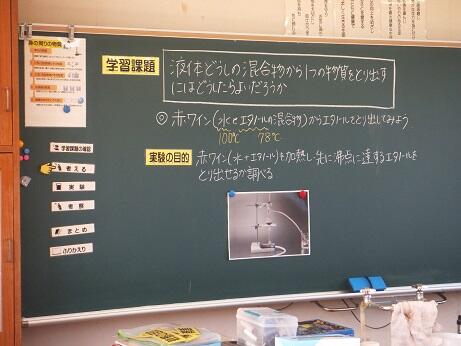 身の周りの物質
学習課題
液体どうしの混合物から1つの物質をとり出す
にはどうしたらよいだろうか
◎ 赤ワイン(水とエタノールの混合物)からエタノールをとり出してみよう
100℃ 78℃
実験の目的
赤ワイン(水+エタノール)を加熱し先に沸点に達するエタノールを
とり出せるか調べる
学習課題の確認
考える
実験
考察
まとめ
ふりかえり